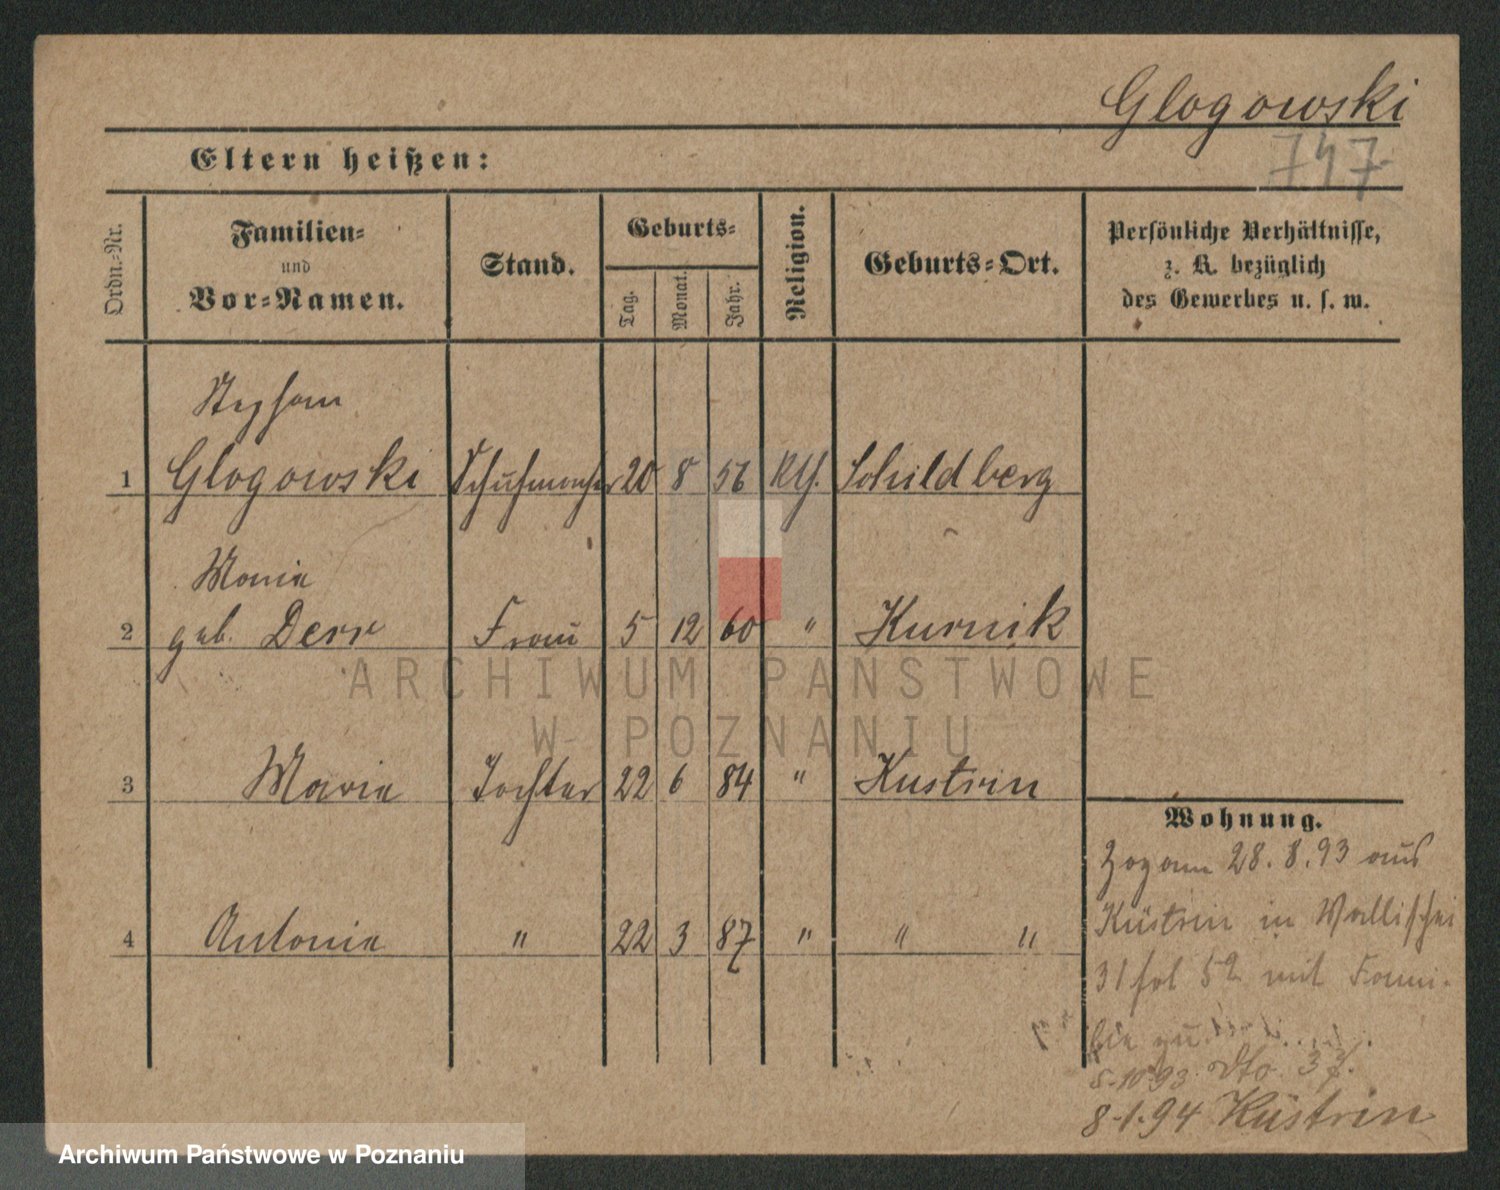 Glogowski
747
Eltern heißen:
Ordn.-Nr.
Familien-
und
Vor-Namen.
Stand.
Geburts-
Tag.
Monat.
Jahr.
Religion.
Geburts-Ort.
Persönliche Verhältnisse,
z. B. bezüglich
des Gewerbes u. s. w.
Stephan
1 Glogowski Schuhmacher 20 8 56 Kth. Schildberg
Maria
2 geb. Derr Frau 5 12 60 " Kurnik
ARCHIWUM PAŃSTWOWE
W POZNANIU
3 Maria Tochter 22 6 84 " Kustrin
Wohnung.
Zog am 28.8.93 aus
Küstrin in Wallischei
4 Antonie " 22 3 87 " " "
31 fol 52 mit Fami-
lie zu
5.10.93. dto 37.
8.1.94 Küstrin
Archiwum Państwowe w Poznaniu